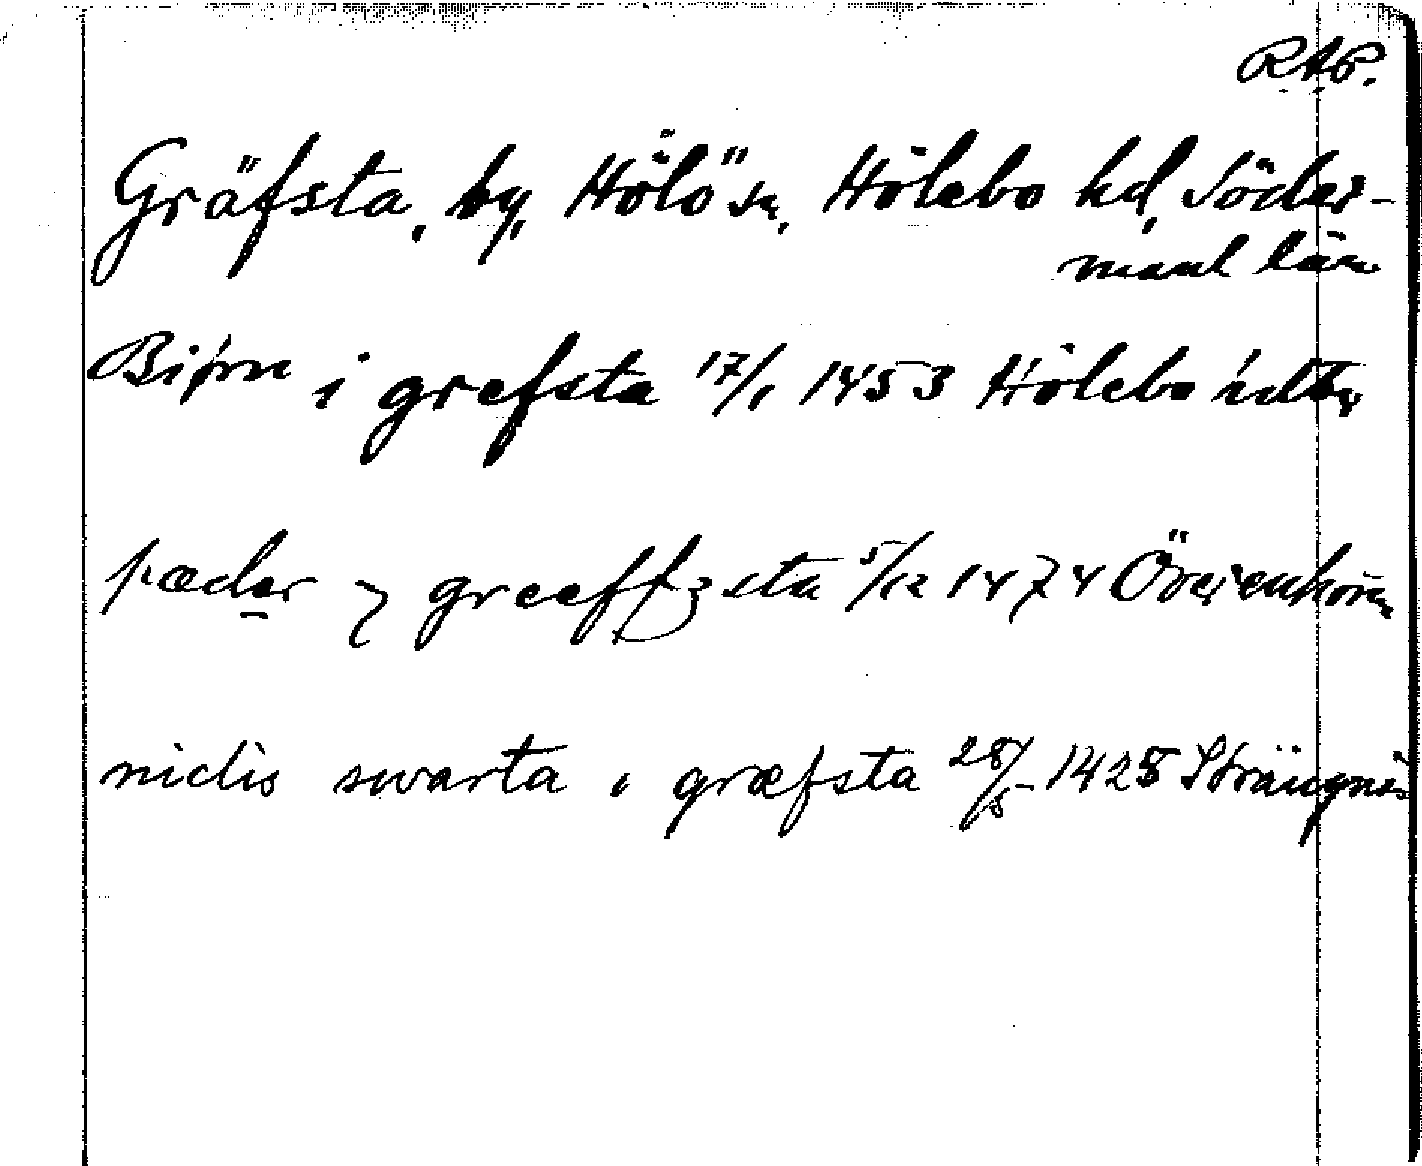 RAP.
Gräfsta, by, Hölö sn, Hölebo hd, Söder-
manl län
Biørn i grefsta 17/1 1453 Hölebo hdtg
pædar j greeffzsta 5/12 1474 Överenhörna
niclis swarta i græfsta 28/5 1425 Strängnäs